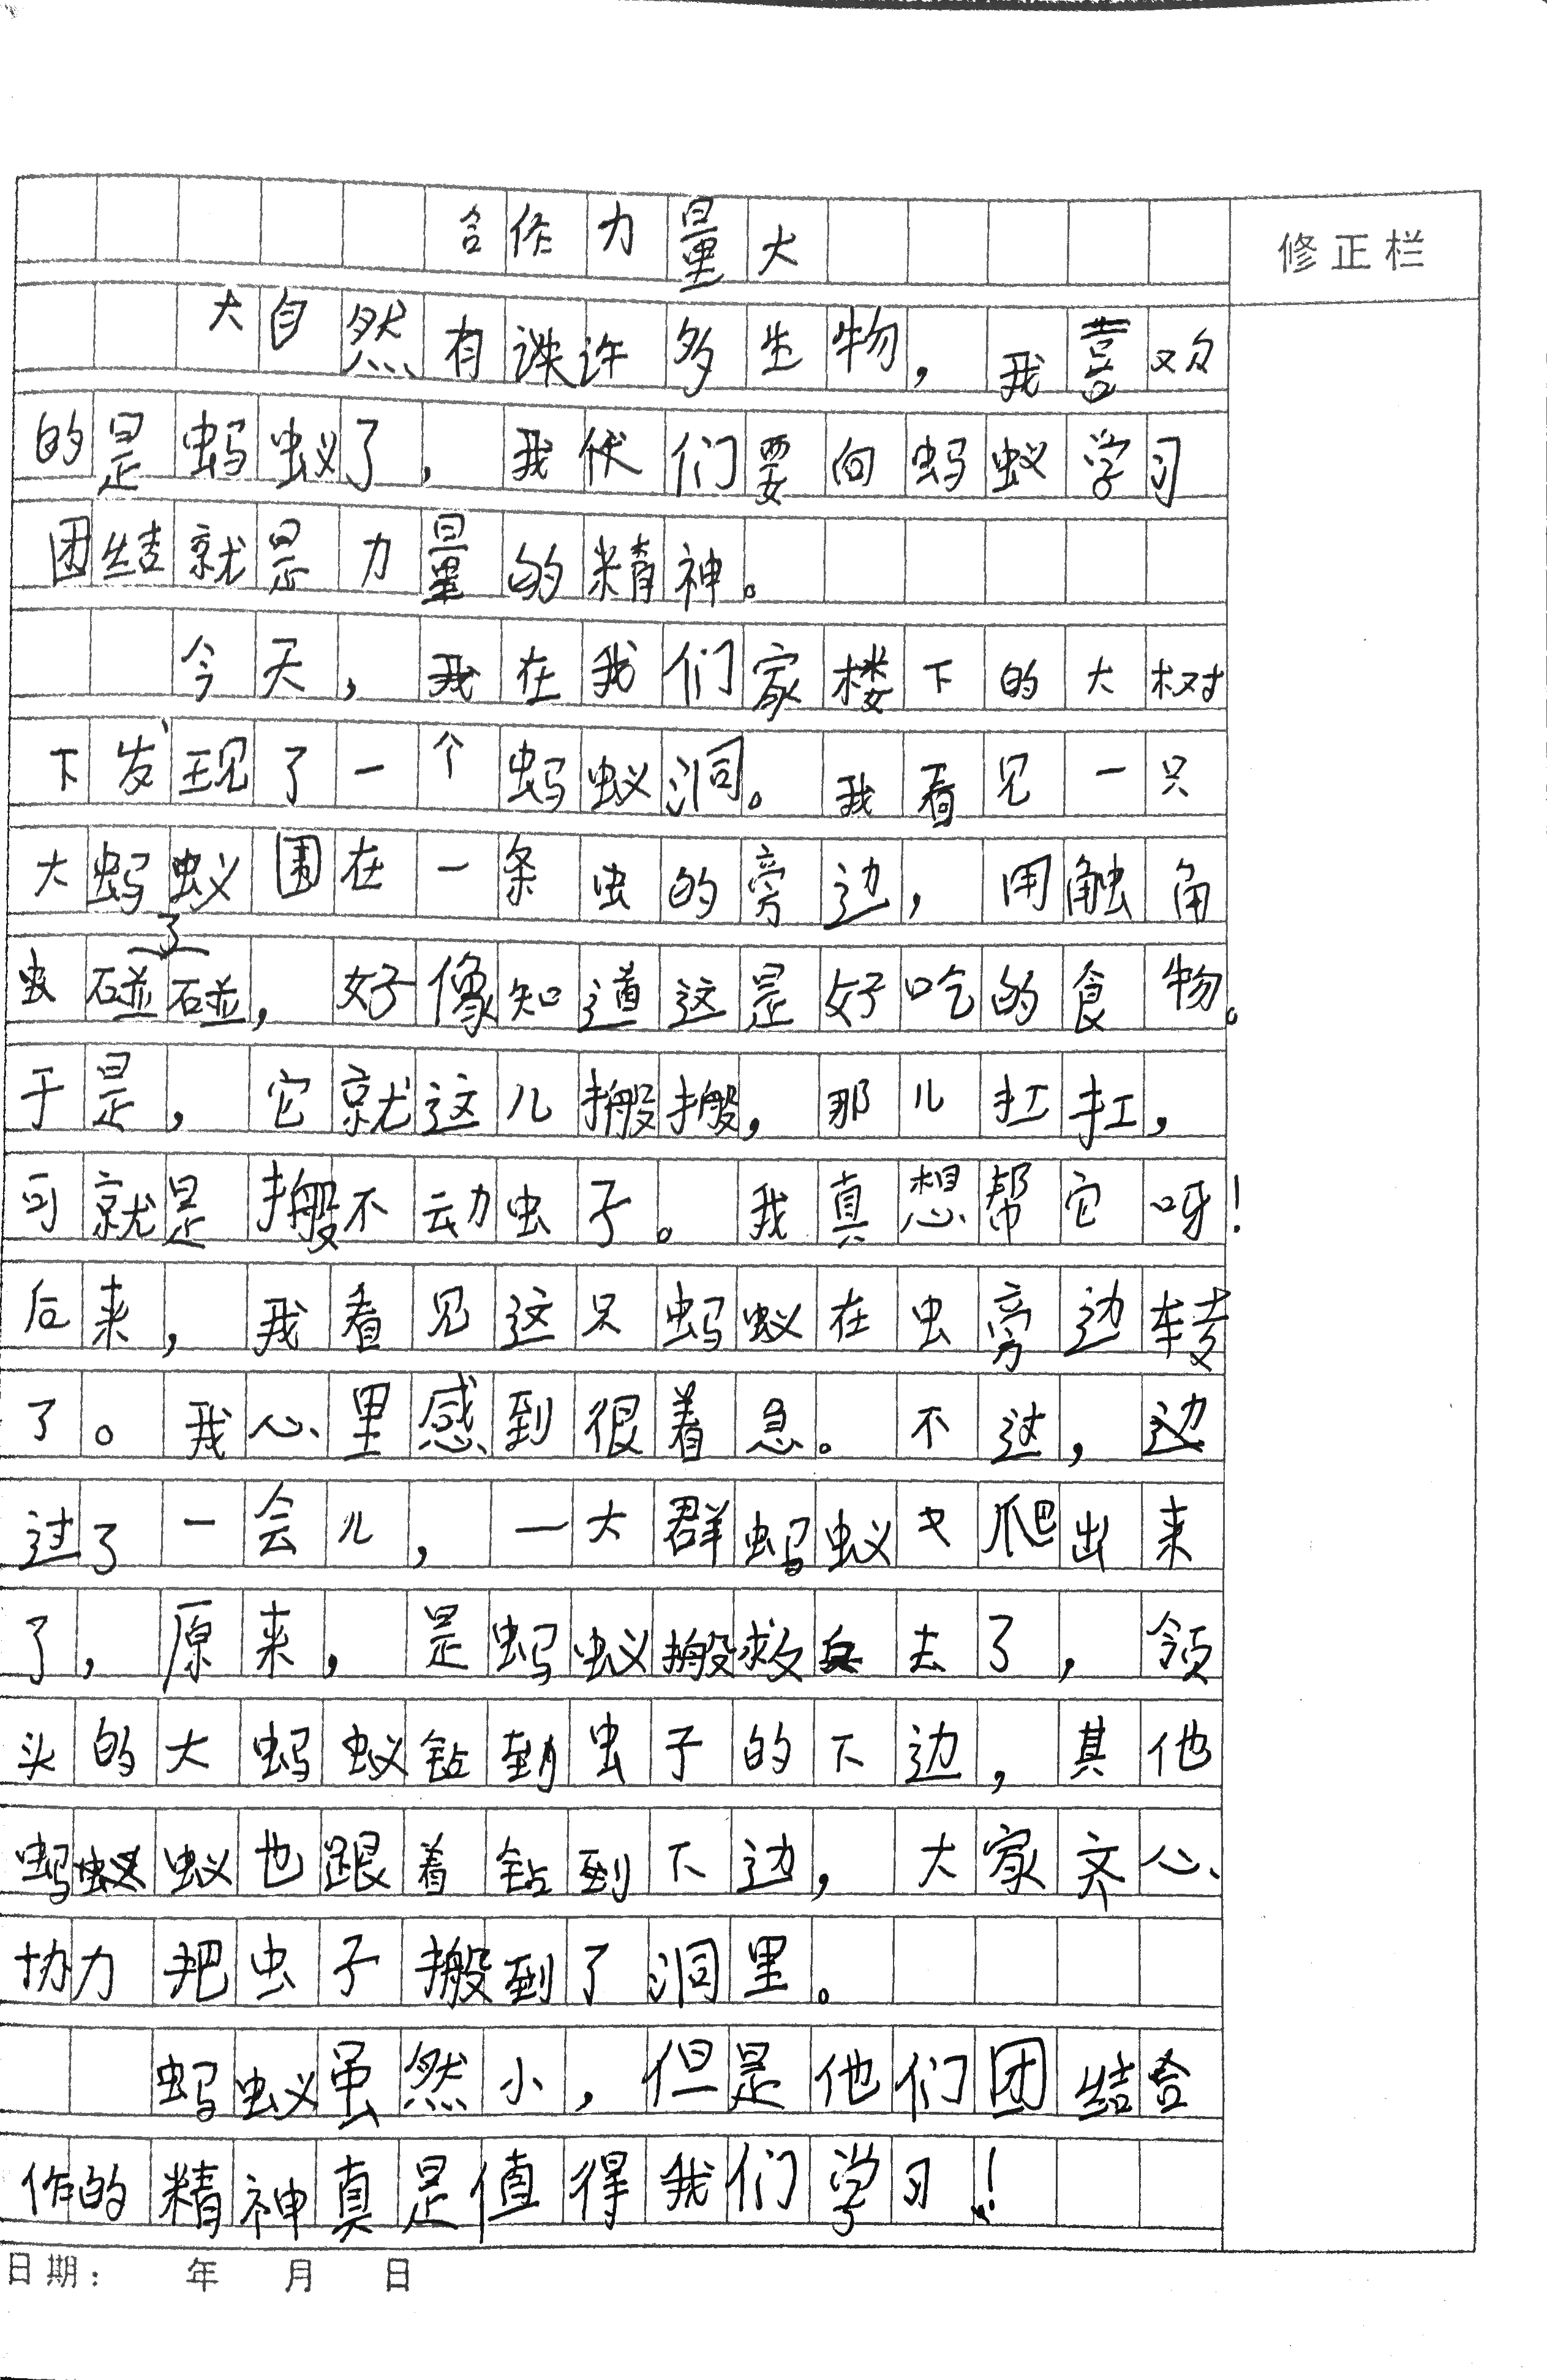 合作力量大
修正栏
大自然有许多生物，我喜欢
的是蚂蚁了，我们要向蚂蚁学习
团结就是力量的精神。
今天，我在我们家楼下的大树
下发现了一个蚂蚁洞。我看见一只
大蚂蚁围在一条虫的旁边，用触角
虫碰了碰，好像知道这是好吃的食物。
于是，它就这儿搬搬，那儿扛扛，
可就是搬不动虫子。我真想帮它呀！
后来，我看见这只蚂蚁在虫旁边转
了。我心里感到很着急。不过，
过了一会儿，一大群蚂蚁爬出来
了，原来，是蚂蚁搬救兵去了，领
头的大蚂蚁钻到虫子的下边，其他
蚂蚁也跟着钻到下边，大家齐心
协力把虫子搬到了洞里。
蚂蚁虽然小，但是他们团结合
作的精神真是值得我们学习！
日期：　年　月　日